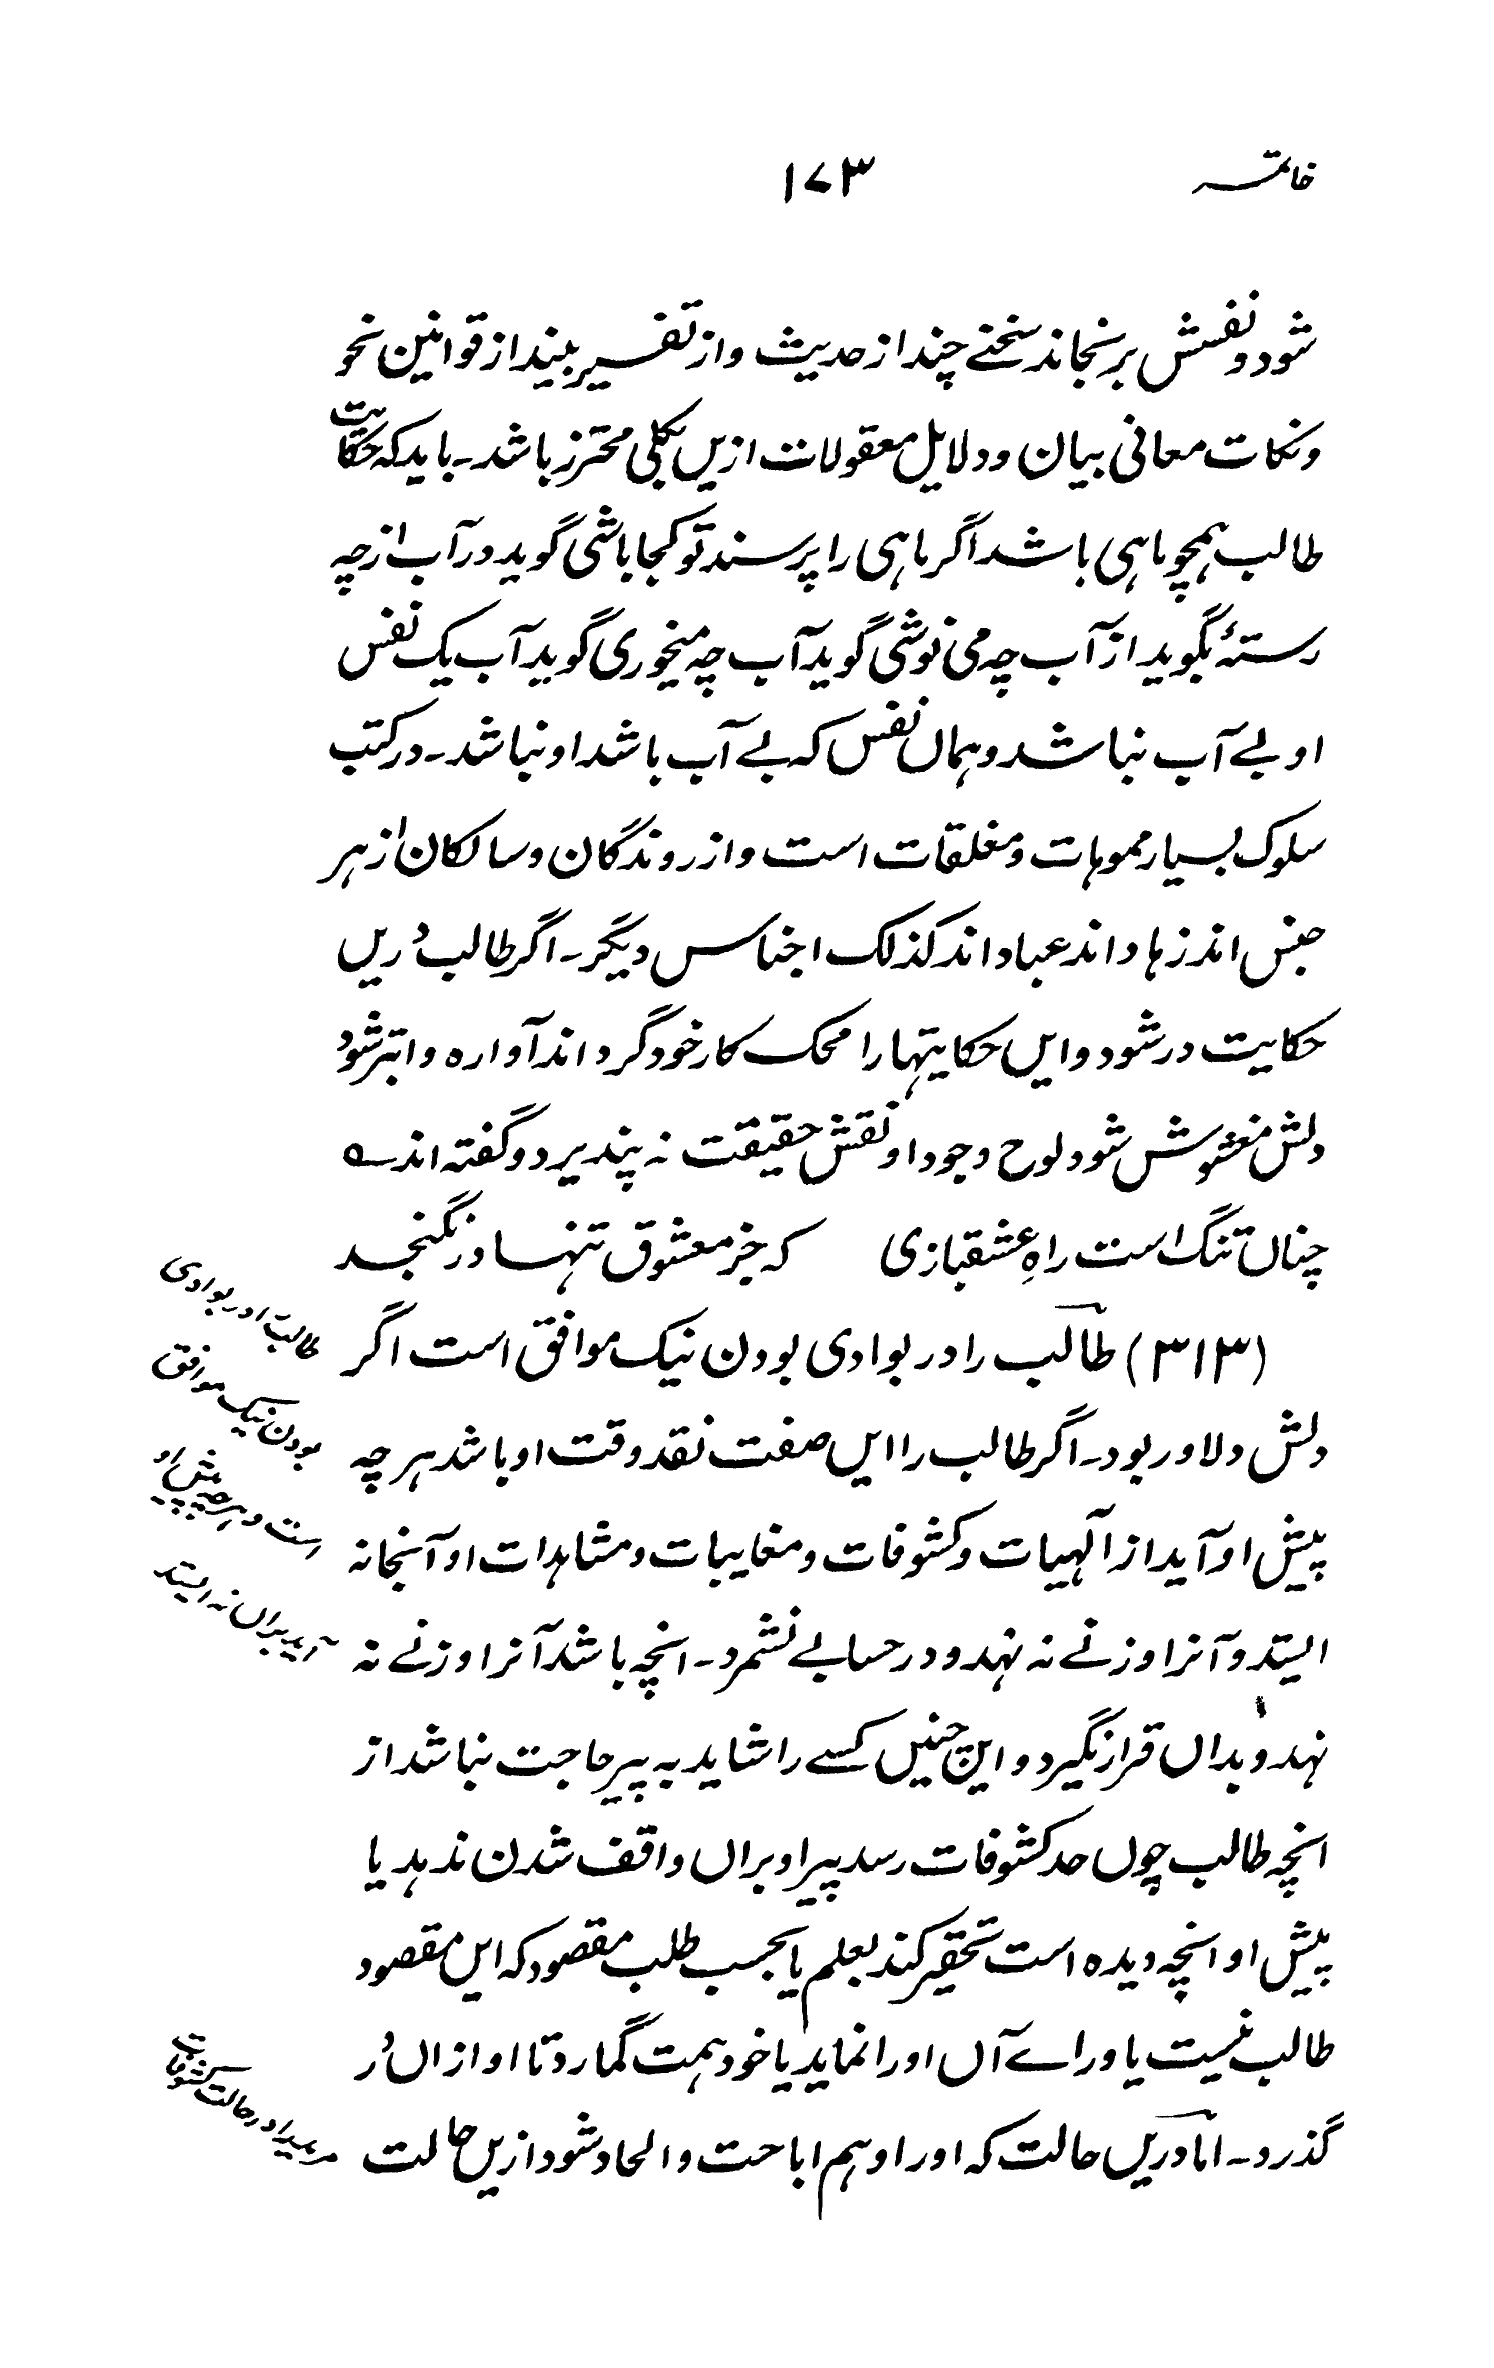 خاتمہ ۱۷۳
شود و نفسش برنجاند سخنے چند از حدیث و از تفسیر بیند از قوانین نحو
و نکات معانی بیان و دلایل معقولات ازیں بکلی محترز باشد۔ باید کہ حکایت
طالب ہمچو ماہی باشد اگر ماہی را پرسند تو کجا باشی گوید در آب از چہ
رستۂ بگوید از آب چہ می نوشی گوید آب چہ میخوری گوید آب یک نفس
او بے آب نباشد و ہماں نفس کہ بے آب باشد او نباشد۔ در کتب
سلوک بسیار مموہات و مغلقات است و از روندگان و سالکان از ہر
جنس اند زہاد اند عباد اند کذلک اجناس دیگر۔ اگر طالب دریں
حکایت در شود و ایں حکایتہا را محک کار خود گرداند آوارہ و ابتر شود
دلش مغشوش شود لوح وجود او نقش حقیقت نہ پندیرد و گفتہ اند ؎
چناں تنگ است راہِ عشقبازی کہ جز معشوق تنہا در نگنجد
(۳۱۳) طالب را در بوادی بودن نیک موافق است اگر
دلش دلاور بود۔ اگر طالب را ایں صفت نقد وقت او باشد ہر چہ
پیش او آید از آلٰہیات و کشوفات و مغایبات و مشاہدات او آنجا نہ
ایستد و آنرا وزنے نہ نہد و در حسابے نشمرد۔ انچہ باشد آنرا وزنے نہ
نہد و بداں قرار نگیرد و ایں چنیں کسے را شاید بہ پیر حاجت نباشد از
انچہ طالب چوں حد کشوفات رسد پیر او براں واقف شدن ندہد یا
پیش او انچہ دیدہ است تحقیر کند بعلم یا بحسب طلب مقصود کہ ایں مقصود
طالب نیست یا وراے آں اورا نماید یا خود ہمت گمارد تا او ازاں در
گذرد۔ اما دریں حالت کہ اورا وہم اباحت و الحاد شود ازیں حالت
طالب را در بوادی
بودن نیک موافق
است و ہرچہ پیش او
آید براں نہ ایستد
مرید را در حالت کشوفات